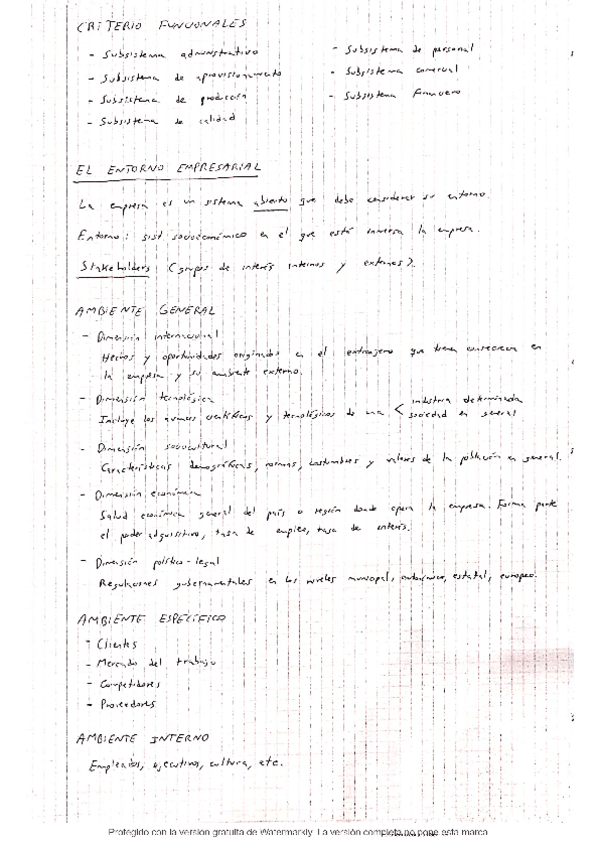 CRITERIO FUNCIONALES
- Subsistema administrativo
- Subsistema de aprovisionamiento
- Subsistema de producción
- Subsistema de calidad
- Subsistema de personal
- Subsistema comercial
- Subsistema financiero
EL ENTORNO EMPRESARIAL
La empresa es un sistema abierto que debe considerar su entorno.
Entorno: sist socioeconómico en el que está inmersa la empresa.
Stakeholders (grupos de interés internos y externos).
AMBIENTE GENERAL
- Dimensión internacional
Hechos y oportunidades originados en el extranjero que tienen consecuencias en
la empresa y su ambiente externo.
- Dimensión tecnológica
Incluye los avances científicos y tecnológicos de una < industria determinada
sociedad en general
- Dimensión sociocultural
Características demográficas, normas, costumbres y valores de la población en general.
- Dimensión económica
Salud económica general del país o región donde opera la empresa. Forma parte
el poder adquisitivo, tasa de empleo, tasa de interés.
- Dimensión político-legal
Regulaciones gubernamentales en los niveles municipal, autonómico, estatal, europeo.
AMBIENTE ESPECÍFICO
- Clientes
- Mercado del trabajo
- Competidores
- Proveedores
AMBIENTE INTERNO
Empleados, ejecutivos, cultura, etc.
Protegido con la versión gratuita de Watermarkly. La versión completa no pone esta marca